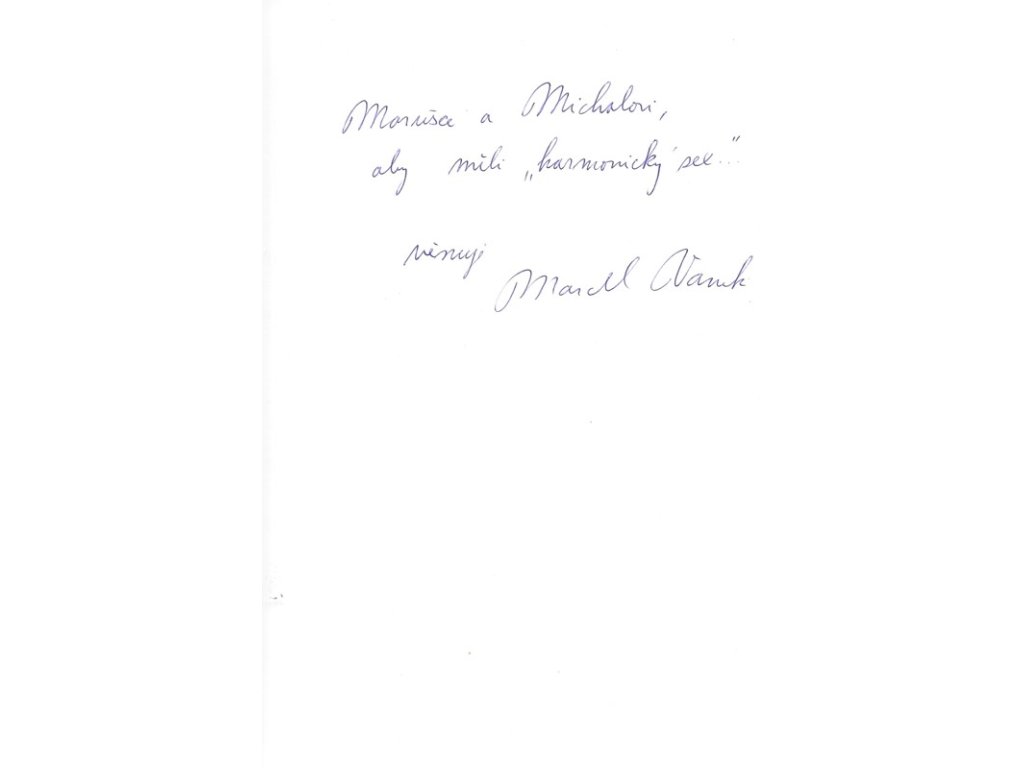 Marušce a Michalovi,
aby měli „harmonický sex..."
věnuji
Marcel Vanek